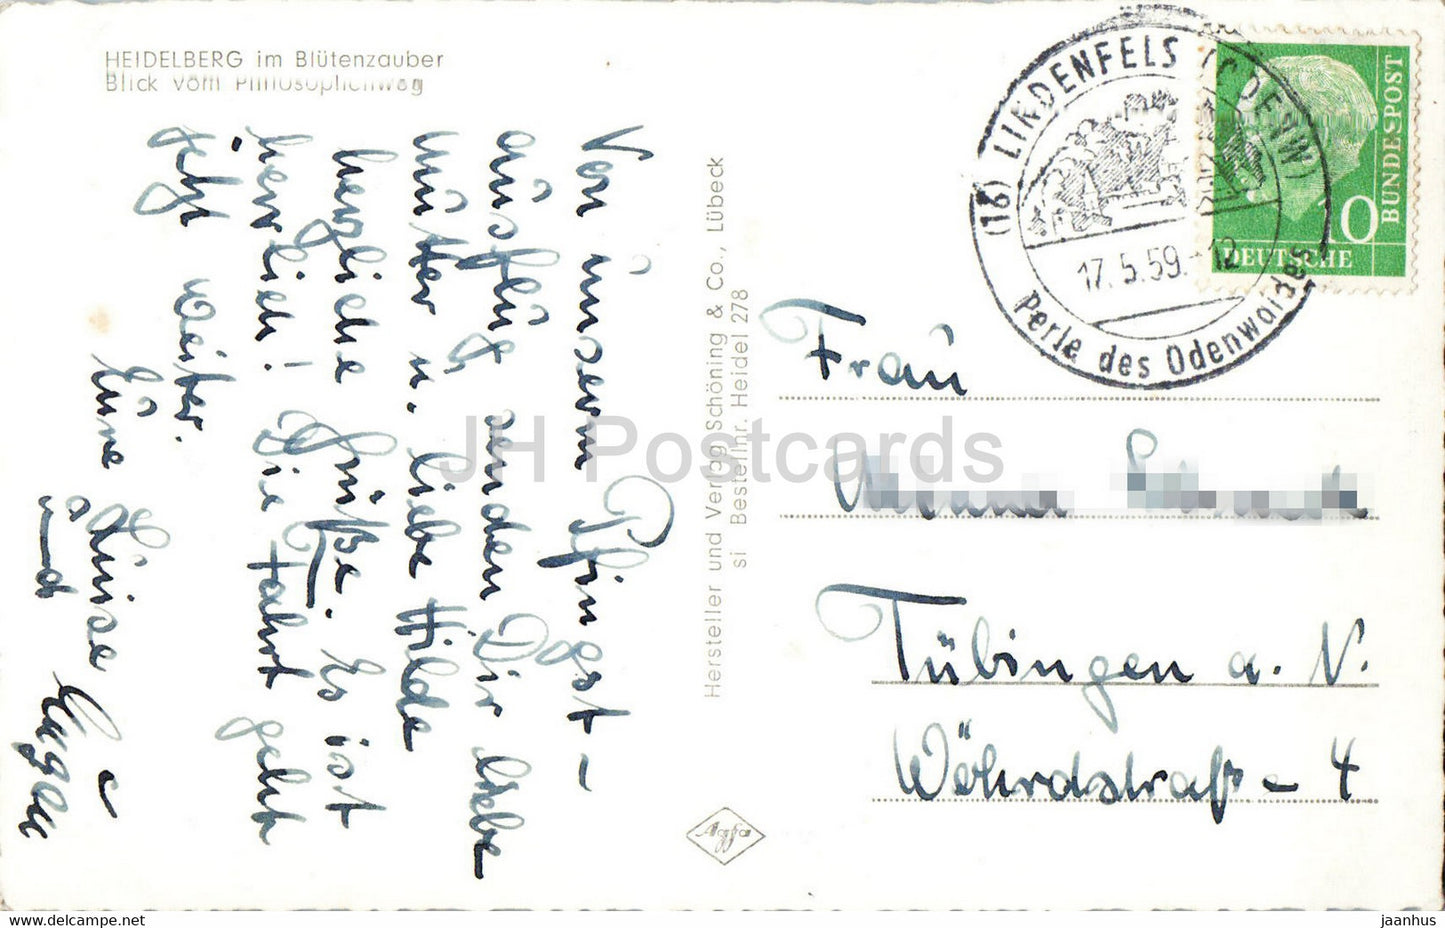 HEIDELBERG im Blütenzauber
Blick vom Philosophenweg
Von unserm Pfingst-
ausflug senden Dir liebe
Mutter u. liebe Hilde
herzliche Grüße. Es ist
herrlich! Die Fahrt geht
jetzt weiter.
Eure Luise
und
Hersteller und Verlag Schöning & Co., Lübeck
si Bestellnr. Heidel 278
Agfa
(16) LINDENFELS (ODENW)
17.5.59.-12
Perle des Odenwaldes
DEUTSCHE
BUNDESPOST
10
Frau
Tübingen a. N.
Wöhrdstraße 4
JH Postcards
hippostcard.com
jaanhus